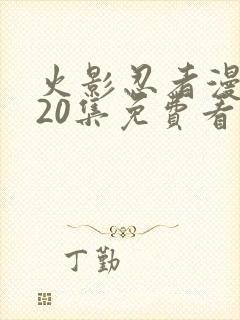 火影忍者漫
20集免費看
丁勤